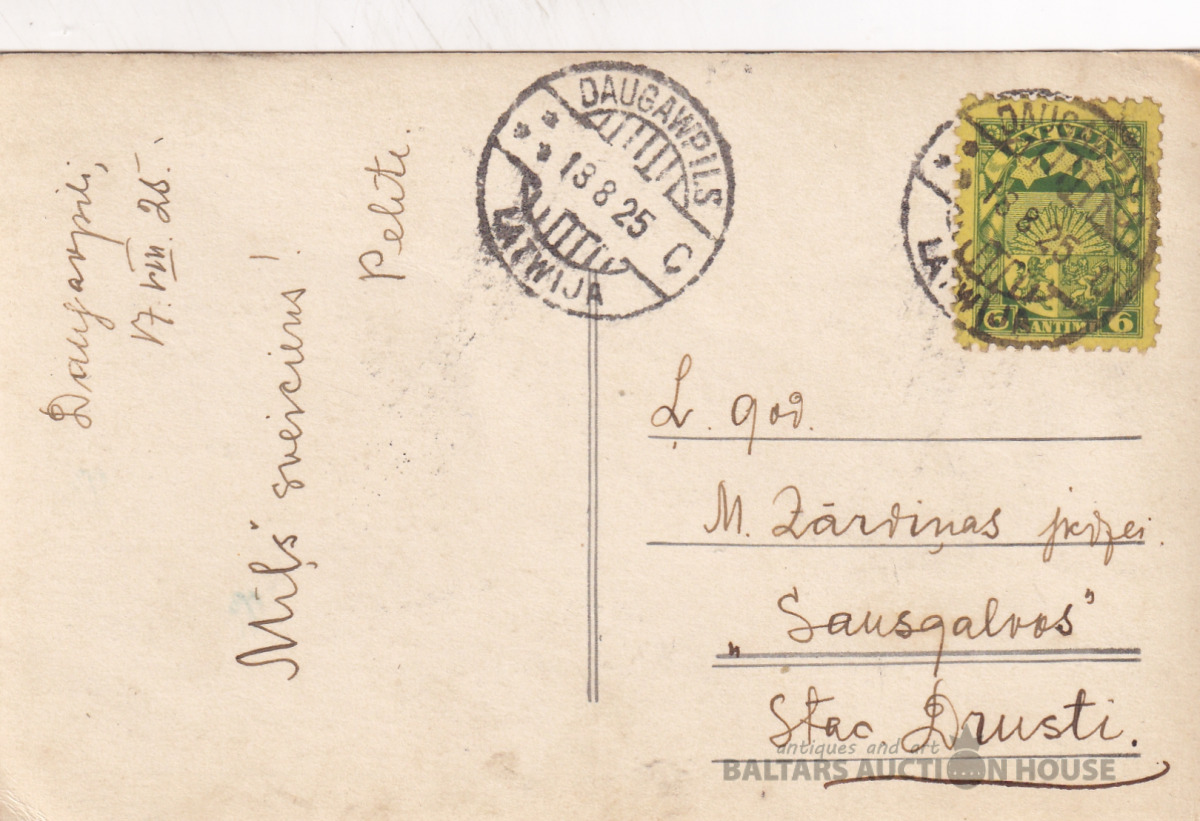 Daugavpilī,
17. VIII. 25.
Mīļš sveiciens!
DAUGAWPILS
18 8 25
C
LATWIJA
LATWIJA
6 SANTIMI 6
Ļ. god.
M. Zārdiņas jkdzei
„Sausgalvos”
Stac Drusti.
antiques and art
BALTARS AUCTION HOUSE